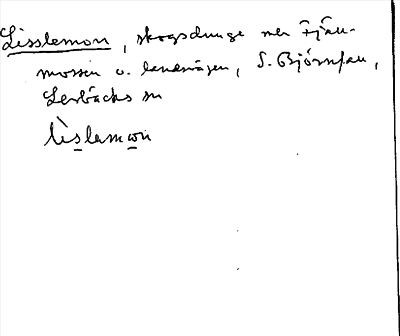 Lisslemon, skogsdunge mell Fjäll-
mossen o. landsvägen, S. Björnfall,
Lerbäcks sn
lìslemωn